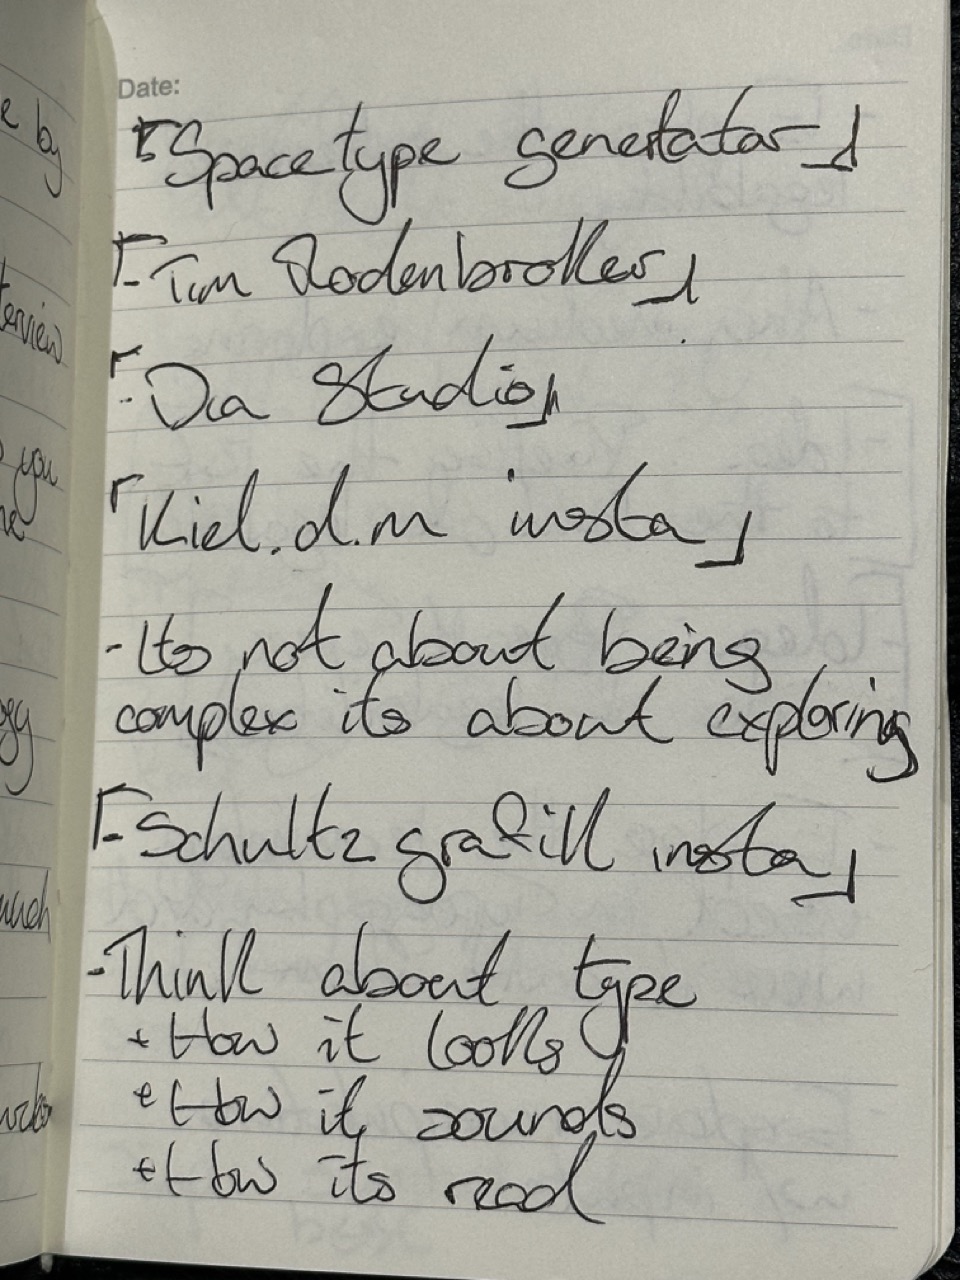 Date:
Space type generator
- Tim Rodenbroker
- Dia Studio
Kiel.d.m insta
- Its not about being
complex its about exploring
- Schultz grafill insta
- Think about type
+ How it looks
+ How it sounds
+ How its read
e by
terview
you
ogy
much